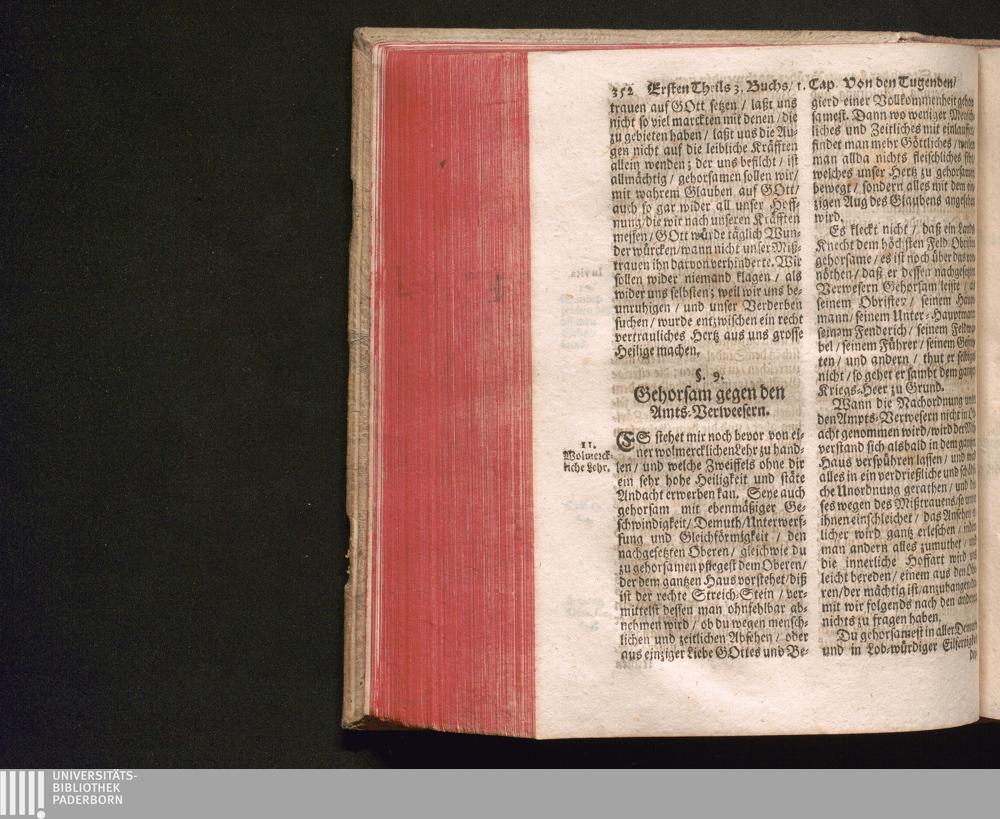 352 Ersten Theils 3. Buchs / 1. Cap. Von den Tugenden /
trauen auf GOtt setzen / laßt uns
nicht so viel marckten mit denen / die
zu gebieten haben / laßt uns die Au-
gen nicht auf die leibliche Kräfften
allein wenden ; der uns befilcht / ist
allmächtig / gehorsamen sollen wir /
mit wahrem Glauben auf GOtt /
auch so gar wider all unser Hoff-
nung / die wir nach unseren Kräfften
messen / GOtt würde täglich Wun-
der würcken / wann nicht unser Miß-
trauen ihn darvon verhinderte. Wir
sollen wider niemand klagen / als
wider uns selbsten ; weil wir uns be-
unruhigen / und unser Verderben
suchen / wurde entzwischen ein recht
vertrauliches Hertz aus uns grosse
Heilige machen.
§. 9.
Gehorsam gegen den
Amts-Verweesern.
11.
Wolmerck-
liche Lehr.
ES stehet mir noch bevor von ei-
ner wolmercklichen Lehr zu hand-
len / und welche Zweiffels ohne dir
ein sehr hohe Heiligkeit und stäte
Andacht erwerben kan. Seye auch
gehorsam mit ebenmäßiger Ge-
schwindigkeit / Demuth / Unterwerf-
fung und Gleichförmigkeit / den
nachgesetzten Oberen / gleichwie du
zu gehorsamen pflegest dem Oberen /
der dem gantzen Haus vorstehet / diß
ist der rechte Streich-Stein / ver-
mittelst dessen man ohnfehlbar ab-
nehmen wird / ob du wegen mensch-
lichen und zeitlichen Absehen / oder
aus einziger Liebe GOttes und Be-
gierd einer Vollkommenheit
samest. Dann wo weniger
liches und Zeitliches mit
findet man mehr Göttliches /
man allda nichts fleischliches
welches unser Hertz zu
bewegt / sondern alles mit dem
zigen Aug des Glaubens
wird.
Es kleckt nicht / daß ein
Knecht dem höchsten Feld-
gehorsame / es ist noch über das
nöthen / daß er dessen
Verwesern Gehorsam leiste /
seinem Obrister / seinem
mann / seinem Unter-
seinem Fenderich / seinem
bel / seinem Führer / seinem
ten / und andern / thut er
nicht / so gehet er sambt dem
Kriegs-Heer zu Grund.
Wann die Nachordnung
den Ampts-Verwesern nicht in
acht genommen wird / wird der
verstand sich alsbald in dem
Haus verspühren lassen / und
alles in ein verdrießliche und
che Unordnung gerathen / und
ses wegen des Mißtrauens / so
ihnen einschleichet / das
licher wird gantz erleschen /
man andern alles zumuthet /
die innerliche Hoffart wird
leicht bereden / einem aus den
ren / der mächtig ist / anzuhangen /
mit wir folgends nach den
nichts zu fragen haben.
Du gehorsamest in aller
und in Lob-würdiger
UNIVERSITÄTS-
BIBLIOTHEK
PADERBORN